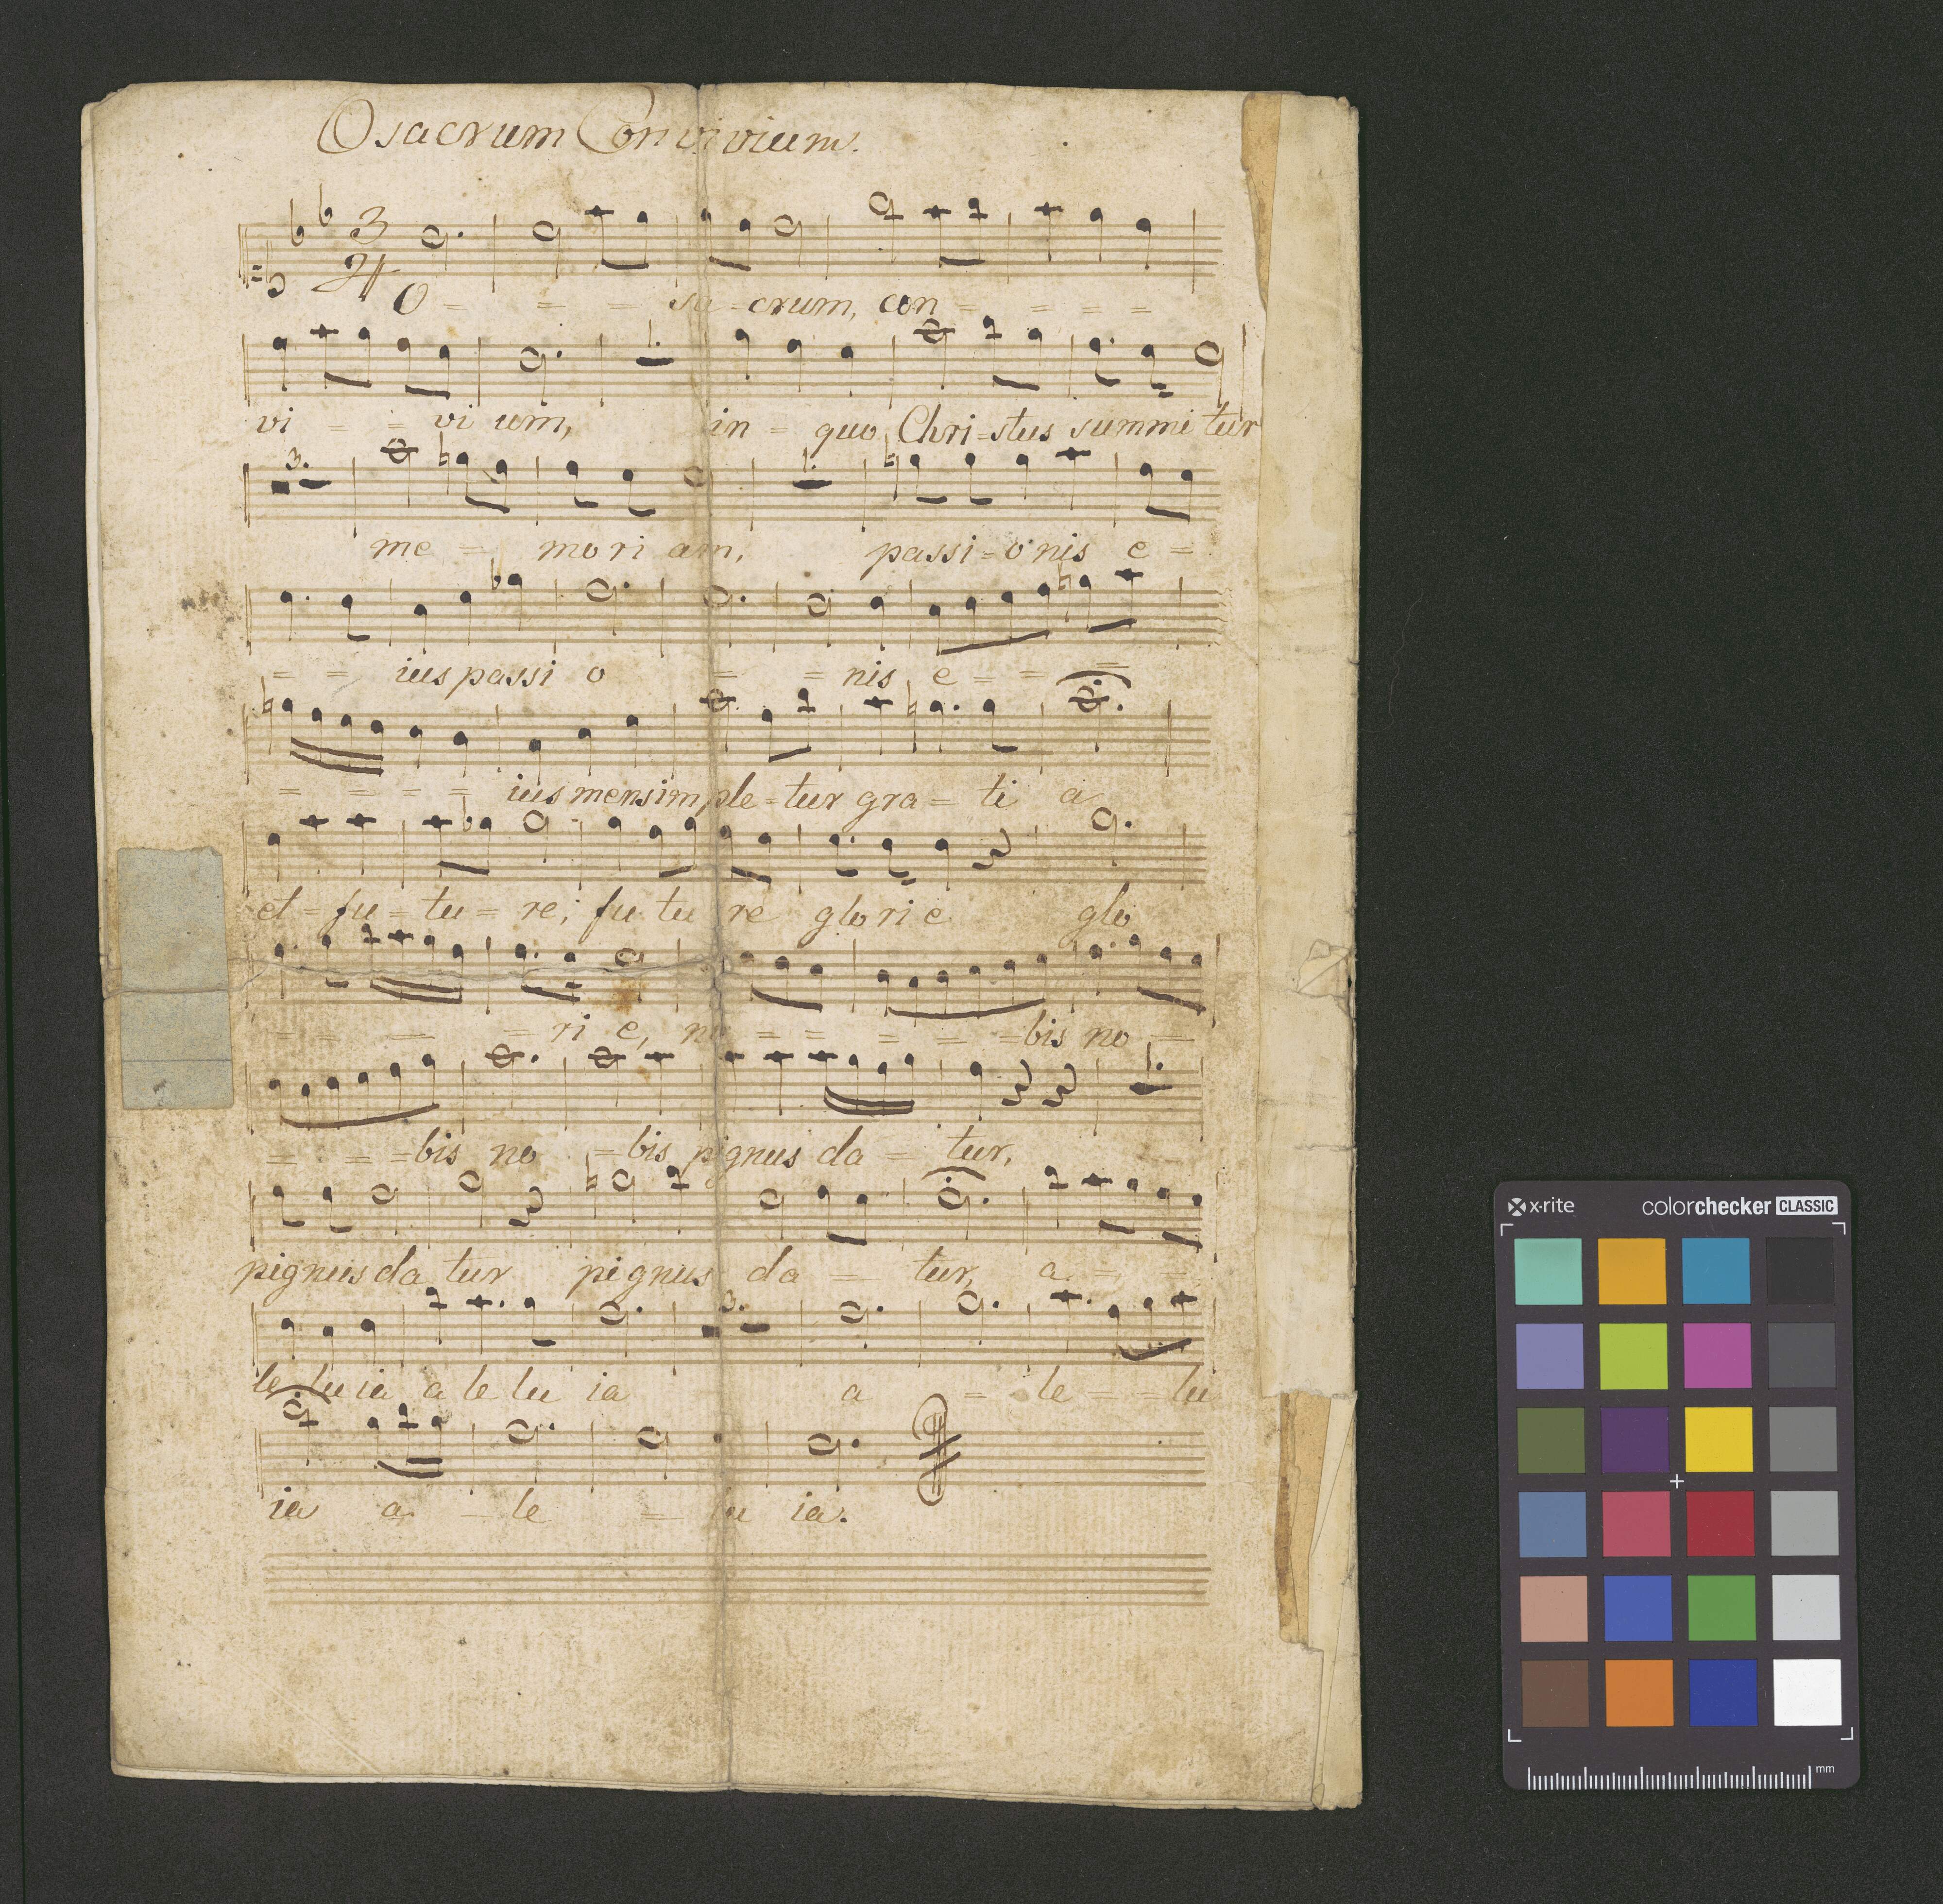 O sacrum Convivium.
3
4
O = = = sa = crum, con = = = =
vi = = vi um, in = quo Chri = stus summi tur
3.
me = mo ri am, passi = o nis e =
= = ius passi o = = nis e = = =
= = = = ius mens im ple = tur gra = ti a
et = fu = tu = re; fu tu re glo ri e glo
= = = = ri e, no = = = = = bis no =
= = = bis no = bis pignus da = tur,
pignus da tur pignus da = tur, a = =
3.
le lu ia a le lu ia a = le = lu
ia a = le = lu ia.
x·rite colorchecker CLASSIC
mm